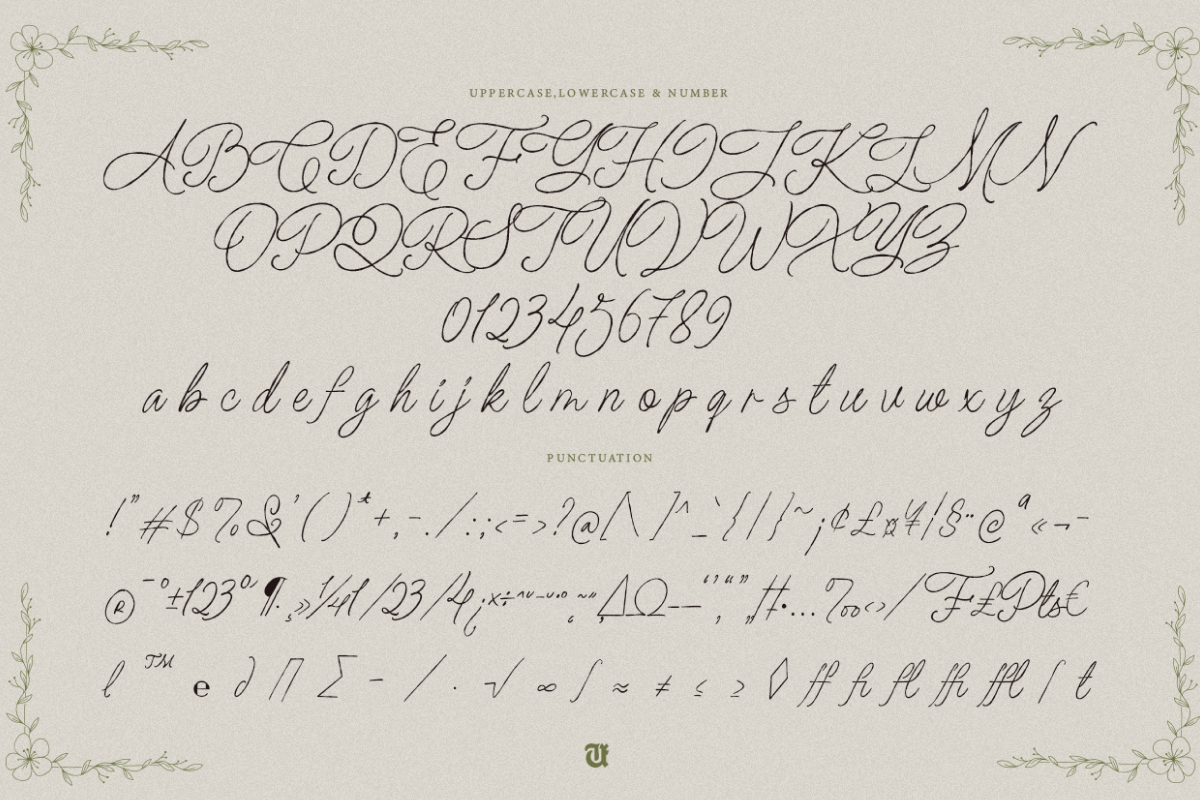 UPPERCASE,LOWERCASE & NUMBER
ABCDEFGHIJKLMN
OPQRSTUVWXYZ
0123456789
a b c d e f g h i j k l m n o p q r s t u v w x y z
PUNCTUATION
! " # $ % & ' ( ) * + , - . / : ; < = > ? @ [ \ ] ^ _ ` { | } ~ ¡ ¢ £ ¤ ¥ ¦ § ¨ © ª « ¬ -
® ¯ ° ± ¹ 2 3 º ¶ · ¸ » 1⁄4 1/2 3/4 ¿ × ÷ ˆ ˇ – — ‘ ’ “ ” „ ‡ • … ‰ ‹ › ⁄ ₣ ₤ ₧ €
ℓ ™ ℮ ∂ ∏ ∑ − ∕ ∙ √ ∞ ∫ ≈ ≠ ≤ ≥ ◊ ff fi fl ffi ffl ſ t
U